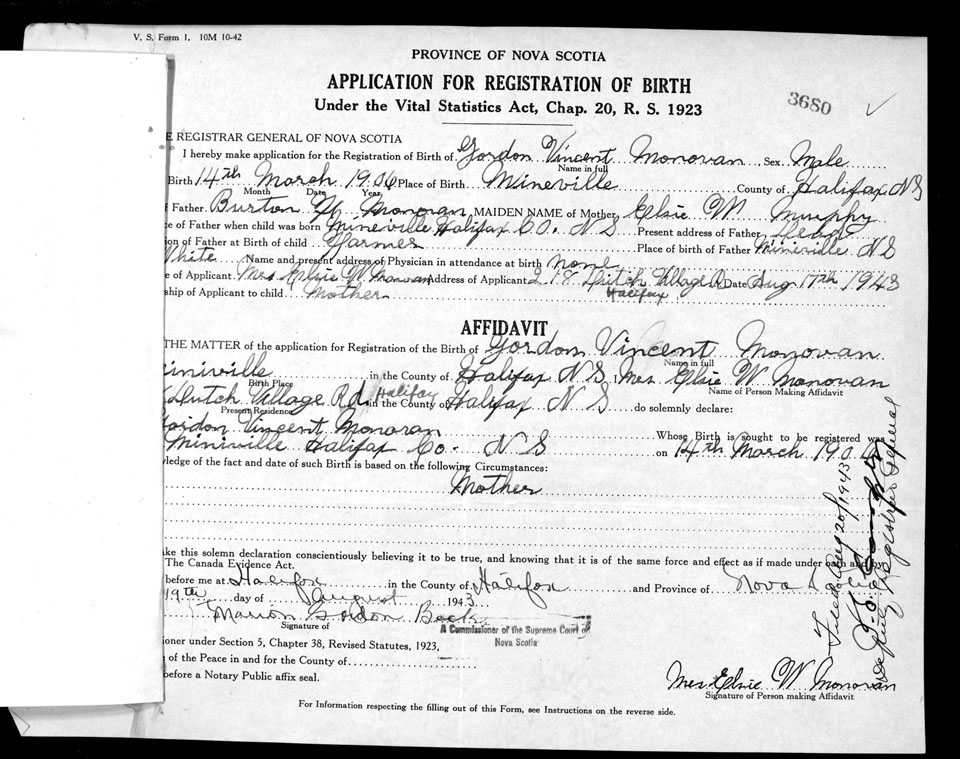 V. S. Form 1. 10M 10-42
PROVINCE OF NOVA SCOTIA
APPLICATION FOR REGISTRATION OF BIRTH
Under the Vital Statistics Act, Chap. 20, R. S. 1923
3680
E REGISTRAR GENERAL OF NOVA SCOTIA
I hereby make application for the Registration of Birth of Gordon Vincent Monovan Sex Male
Name in full
Birth 14th March 1906 Place of Birth Mineville County of Halifax NS
Month Date Year
f Father Burton H. Monovan MAIDEN NAME of Mother Elsie W Murphy
e of Father when child was born Mineville Halifax Co. N S Present address of Father Dead
on of Father at Birth of child Farmer Place of birth of Father Miniville N S
White Name and present address of Physician in attendance at birth none
e of Applicant Mrs Elsie W Monovan Address of Applicant 218 Dutch Village Rd Date Aug 17th 1943
Halifax
ship of Applicant to child Mother
AFFIDAVIT
THE MATTER of the application for Registration of the Birth of Gordon Vincent Monovan
Name in full
iniville in the County of Halifax N S Mrs Elsie W Monovan
Birth Place Name of Person Making Affidavit
Dutch Village Rd. Halifax in the County of Halifax N S do solemnly declare:
Present Residence
Gordon Vincent Monovan Whose Birth is sought to be registered was
Miniville Halifax Co. N S on 14th March 1906
wledge of the fact and date of such Birth is based on the following Circumstances:
Mother
ake this solemn declaration conscientiously believing it to be true, and knowing that it is of the same force and effect as if made under oath and by
The Canada Evidence Act.
before me at Halifax in the County of Halifax and Province of Nova S
19th day of August 1943
Marion Gordon Beck
Signature of
A Commissioner of the Supreme Court of
Nova Scotia
ioner under Section 5, Chapter 38, Revised Statutes, 1923,
of the Peace in and for the County of
before a Notary Public affix seal.
Mrs Elsie W Monovan
Signature of Person making Affidavit
For Information respecting the filling out of this Form, see Instructions on the reverse side.
Filed Aug 20/1943
Deputy Registrar General